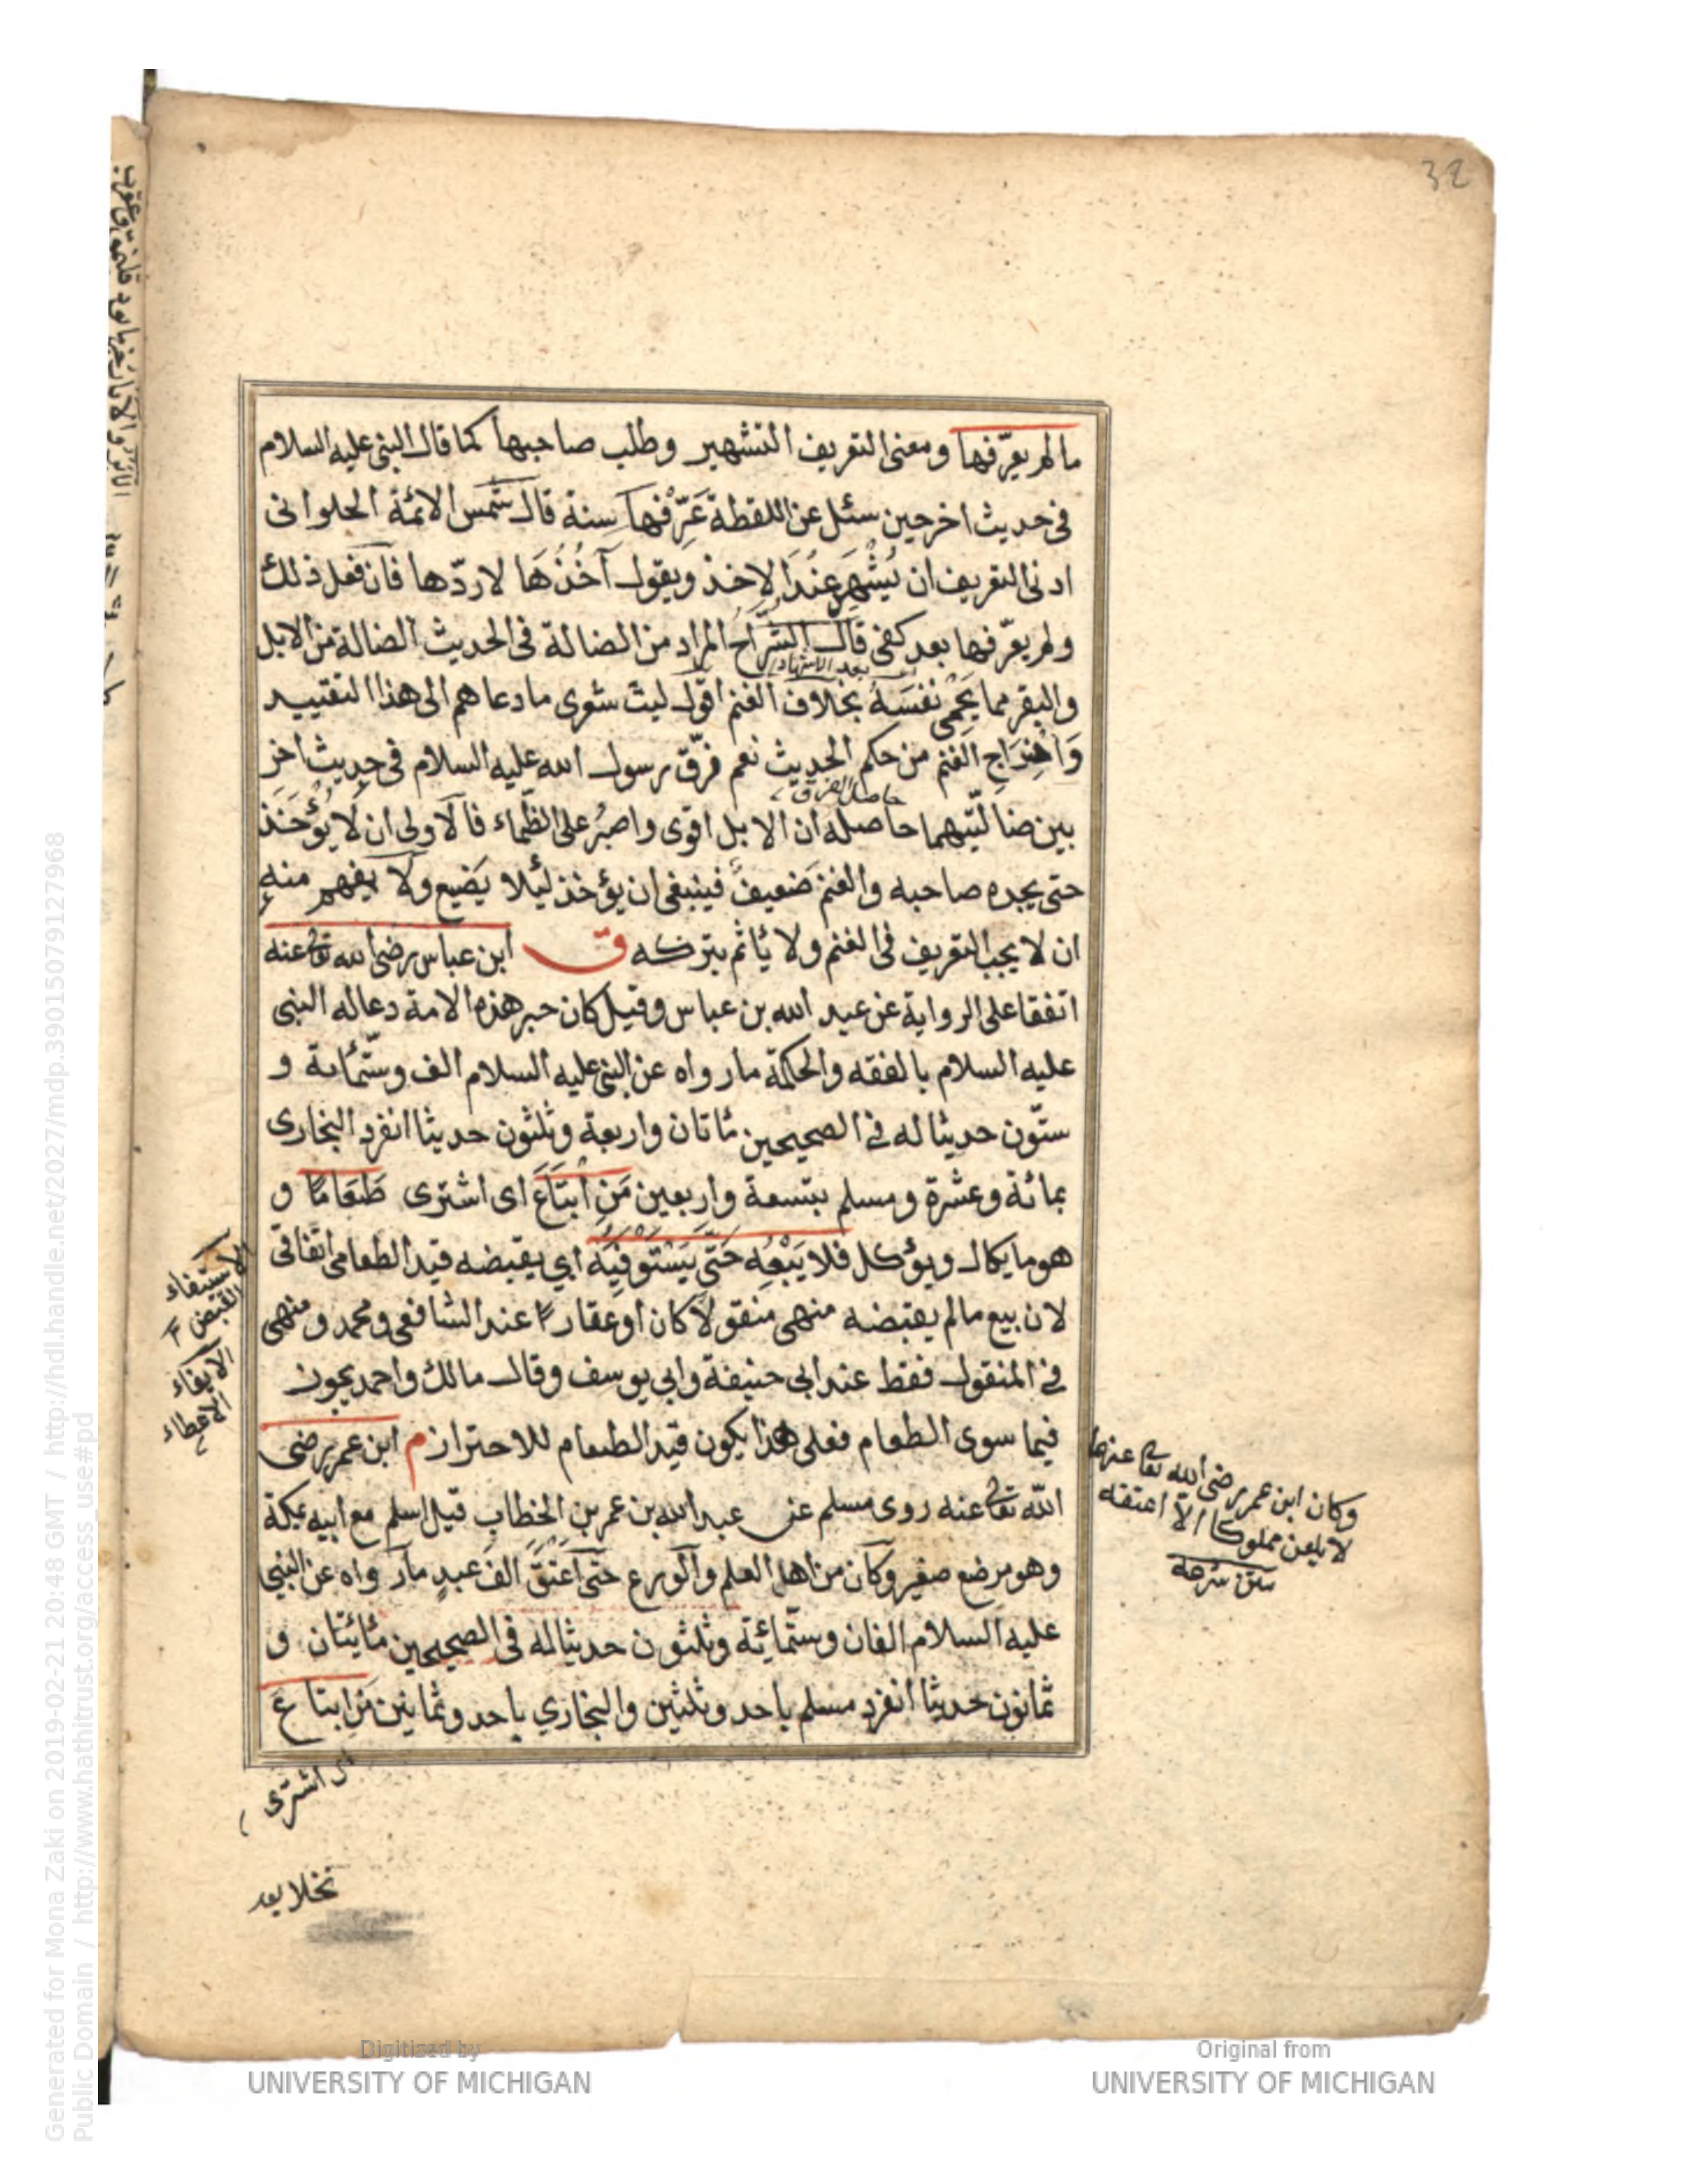 32
ما لم يعرّفها ومعنى التعريف التشهير وطلب صاحبها كما قال النبى عليه السلام
فى حديث اخر حين سئل عن اللقطة عَرِّفْها سنة قال شمس الائمة الحلوانى
ادنى التعريف ان يُشْهِرَ عِنْدَ الاخذ ويقول آخُذُهَا لاردّها فان فعل ذلك
ولم يعرّفها بعد كفى قال الشُّرَّاح المراد من الضالة فى الحديث الضالة من الابل
بعد الاشهاد
والبقر مما يَحْمِى نَفْسَهُ بخلاف الغنم اقول ليت شعرى ما دعاهم الى هذا التقييد
وَاخْرَاجِ الغنم من حكم الحديث نعم فرّق رسول الله عليه السلام فى حديث اخر
حاصل الفرق
بين ضالّتيهما حاصله ان الابل اقوى واصبر على الظماء فالاولى ان لا يُؤْخَذ
حتى يجده صاحبه والغنم ضعيف فينبغى ان يؤخذ ليئلا يَضيع ولا يفهم منه
ان لا يجب التعريف فى الغنم ولا يأثم بتركه ق ابن عباس رضى الله تعا عنه
اتفقا على الرواية عن عبد الله بن عباس وقيل كان حبر هذه الامة دعا له النبى
عليه السلام بالفقه والحكمة ما رواه عن النبى عليه السلام الف وستّمائة و
ستّون حديثا له فى الصحيحين مائتان واربعة وثلثون حديثا انفرد البخارى
بمائة وعشرة ومسلم بتسعة واربعين مَنِ ابْتَاعَ اى اشترى طَعَامًا و
هو ما يكال ويؤكل فلا يَبِعْهُ حَتَّى يَسْتَوْفِيَهُ اى يقبضه قيد الطعام اتفاقى
لان بيع ما لم يقبضه منهى منقولا كان او عقارًا عند الشافعى ومحمد ومنهى
فى المنقول فقط عند ابى حنيفة وابى يوسف وقال مالك واحمد يجوز
فيما سوى الطعام فعلى هذا يكون قيد الطعام للاحتراز م ابن عمر رضى
الله تعا عنه روى مسلم عن عبد الله بن عمر بن الخطاب قيل اسلم مع ابيه بمكة
وهو مرضع صغير وكان من اهل العلم والورع حتى اعتق الف عبد ما رواه عن النبى
عليه السلام الفان وستّمائة وثلثون حديثا له فى الصحيحين مائتان و
ثمانون حديثا انفرد مسلم باحد وثلثين والبخاري باحد وثمانين من ابتاع
اى اشترى
نخلا بعد
الاستيفاء
القبض
الايفاء
الاعطاء
وكان ابن عمر رضى الله تعا عنهما
لا يلعن مملوكا الا اعتقه
Generated for Mona Zaki on 2019-02-21 20:48 GMT / http://hdl.handle.net/2027/mdp.39015079127968
Public Domain / http://www.hathitrust.org/access_use#pd
Digitized by
UNIVERSITY OF MICHIGAN
Original from
UNIVERSITY OF MICHIGAN